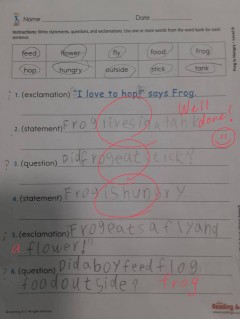 Name Date
Instructions: Write statements, questions, and exclamations. Use one or more words from the word bank for each sentence.
feed flower fly food frog
hop hungry outside stick tank
1. (exclamation) "I love to hop!" says Frog.
Well done!
2. (statement) Frog lives in a tank
3. (question) Did frog eat stick?
4. (statement) Frog is hungry
5. (exclamation) Frog eats a fly and
a flower!
6. (question) Did a boy feed flog
food outside? frog